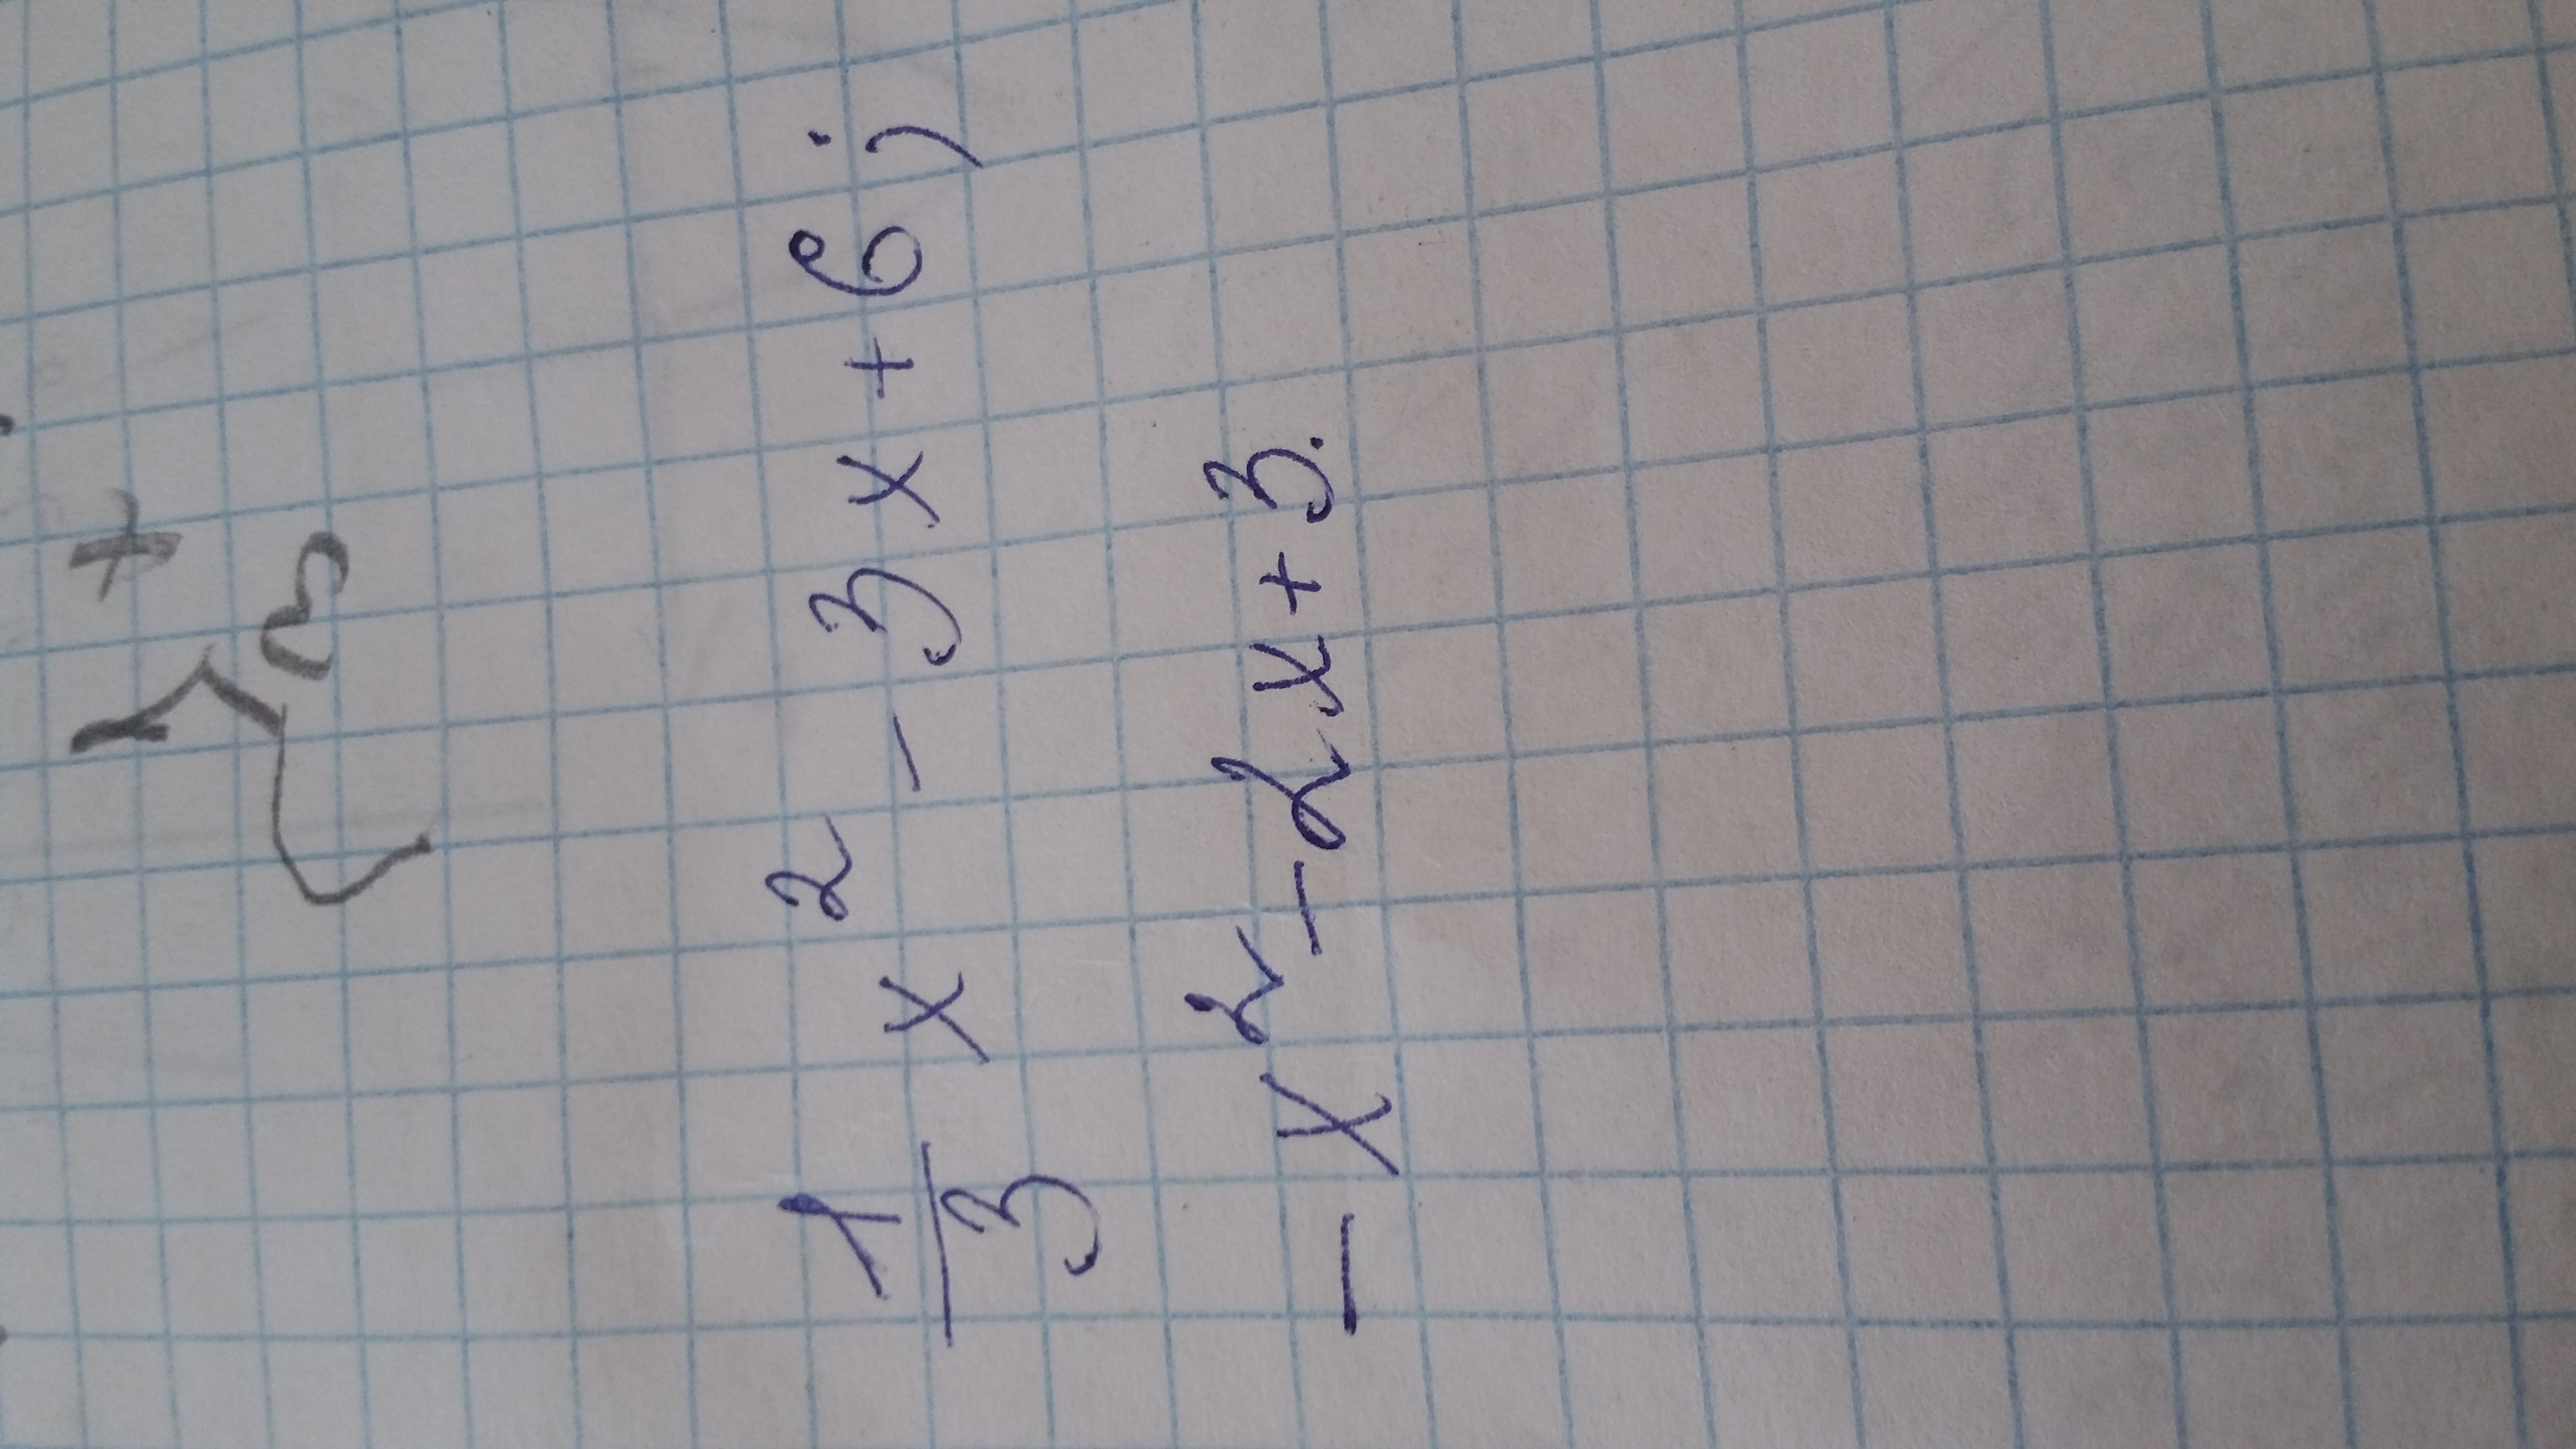 1/3 x² - 3x + 6;
- x² - 2x + 3.